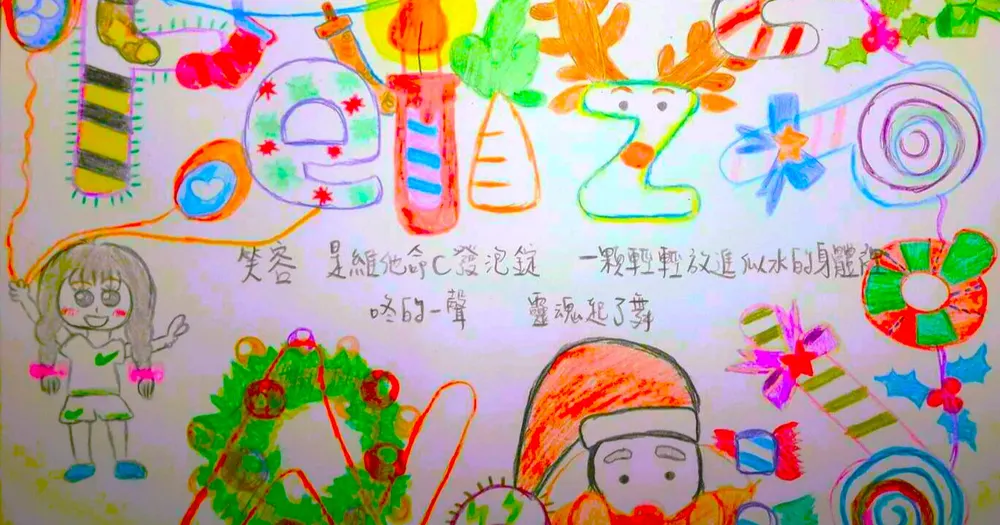 Feliz
笑容 是維他命C發泡錠 一顆輕輕放進似水的身體裡
咚的一聲 靈魂起了舞